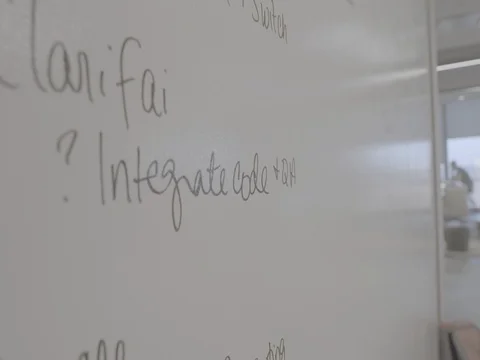 Switch
Clarifai
? Integrate code + QA